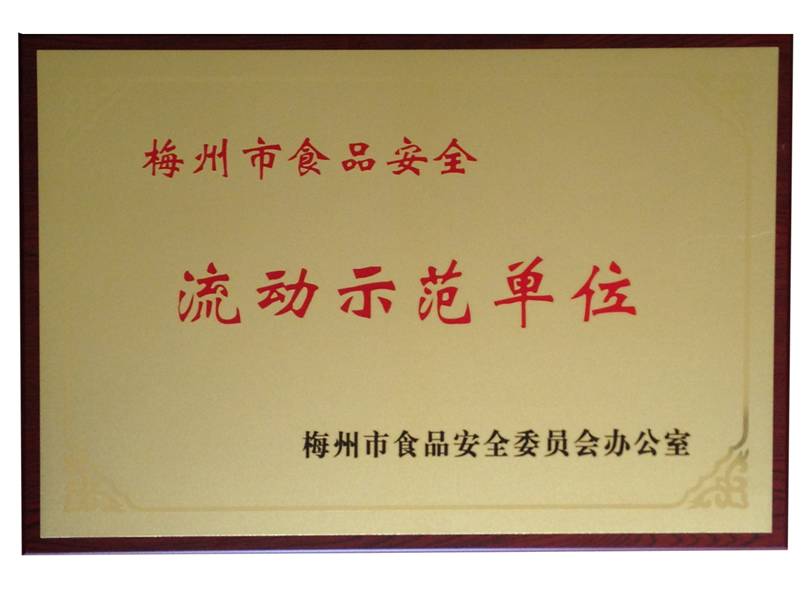 梅州市食品安全
流动示范单位
梅州市食品安全委员会办公室